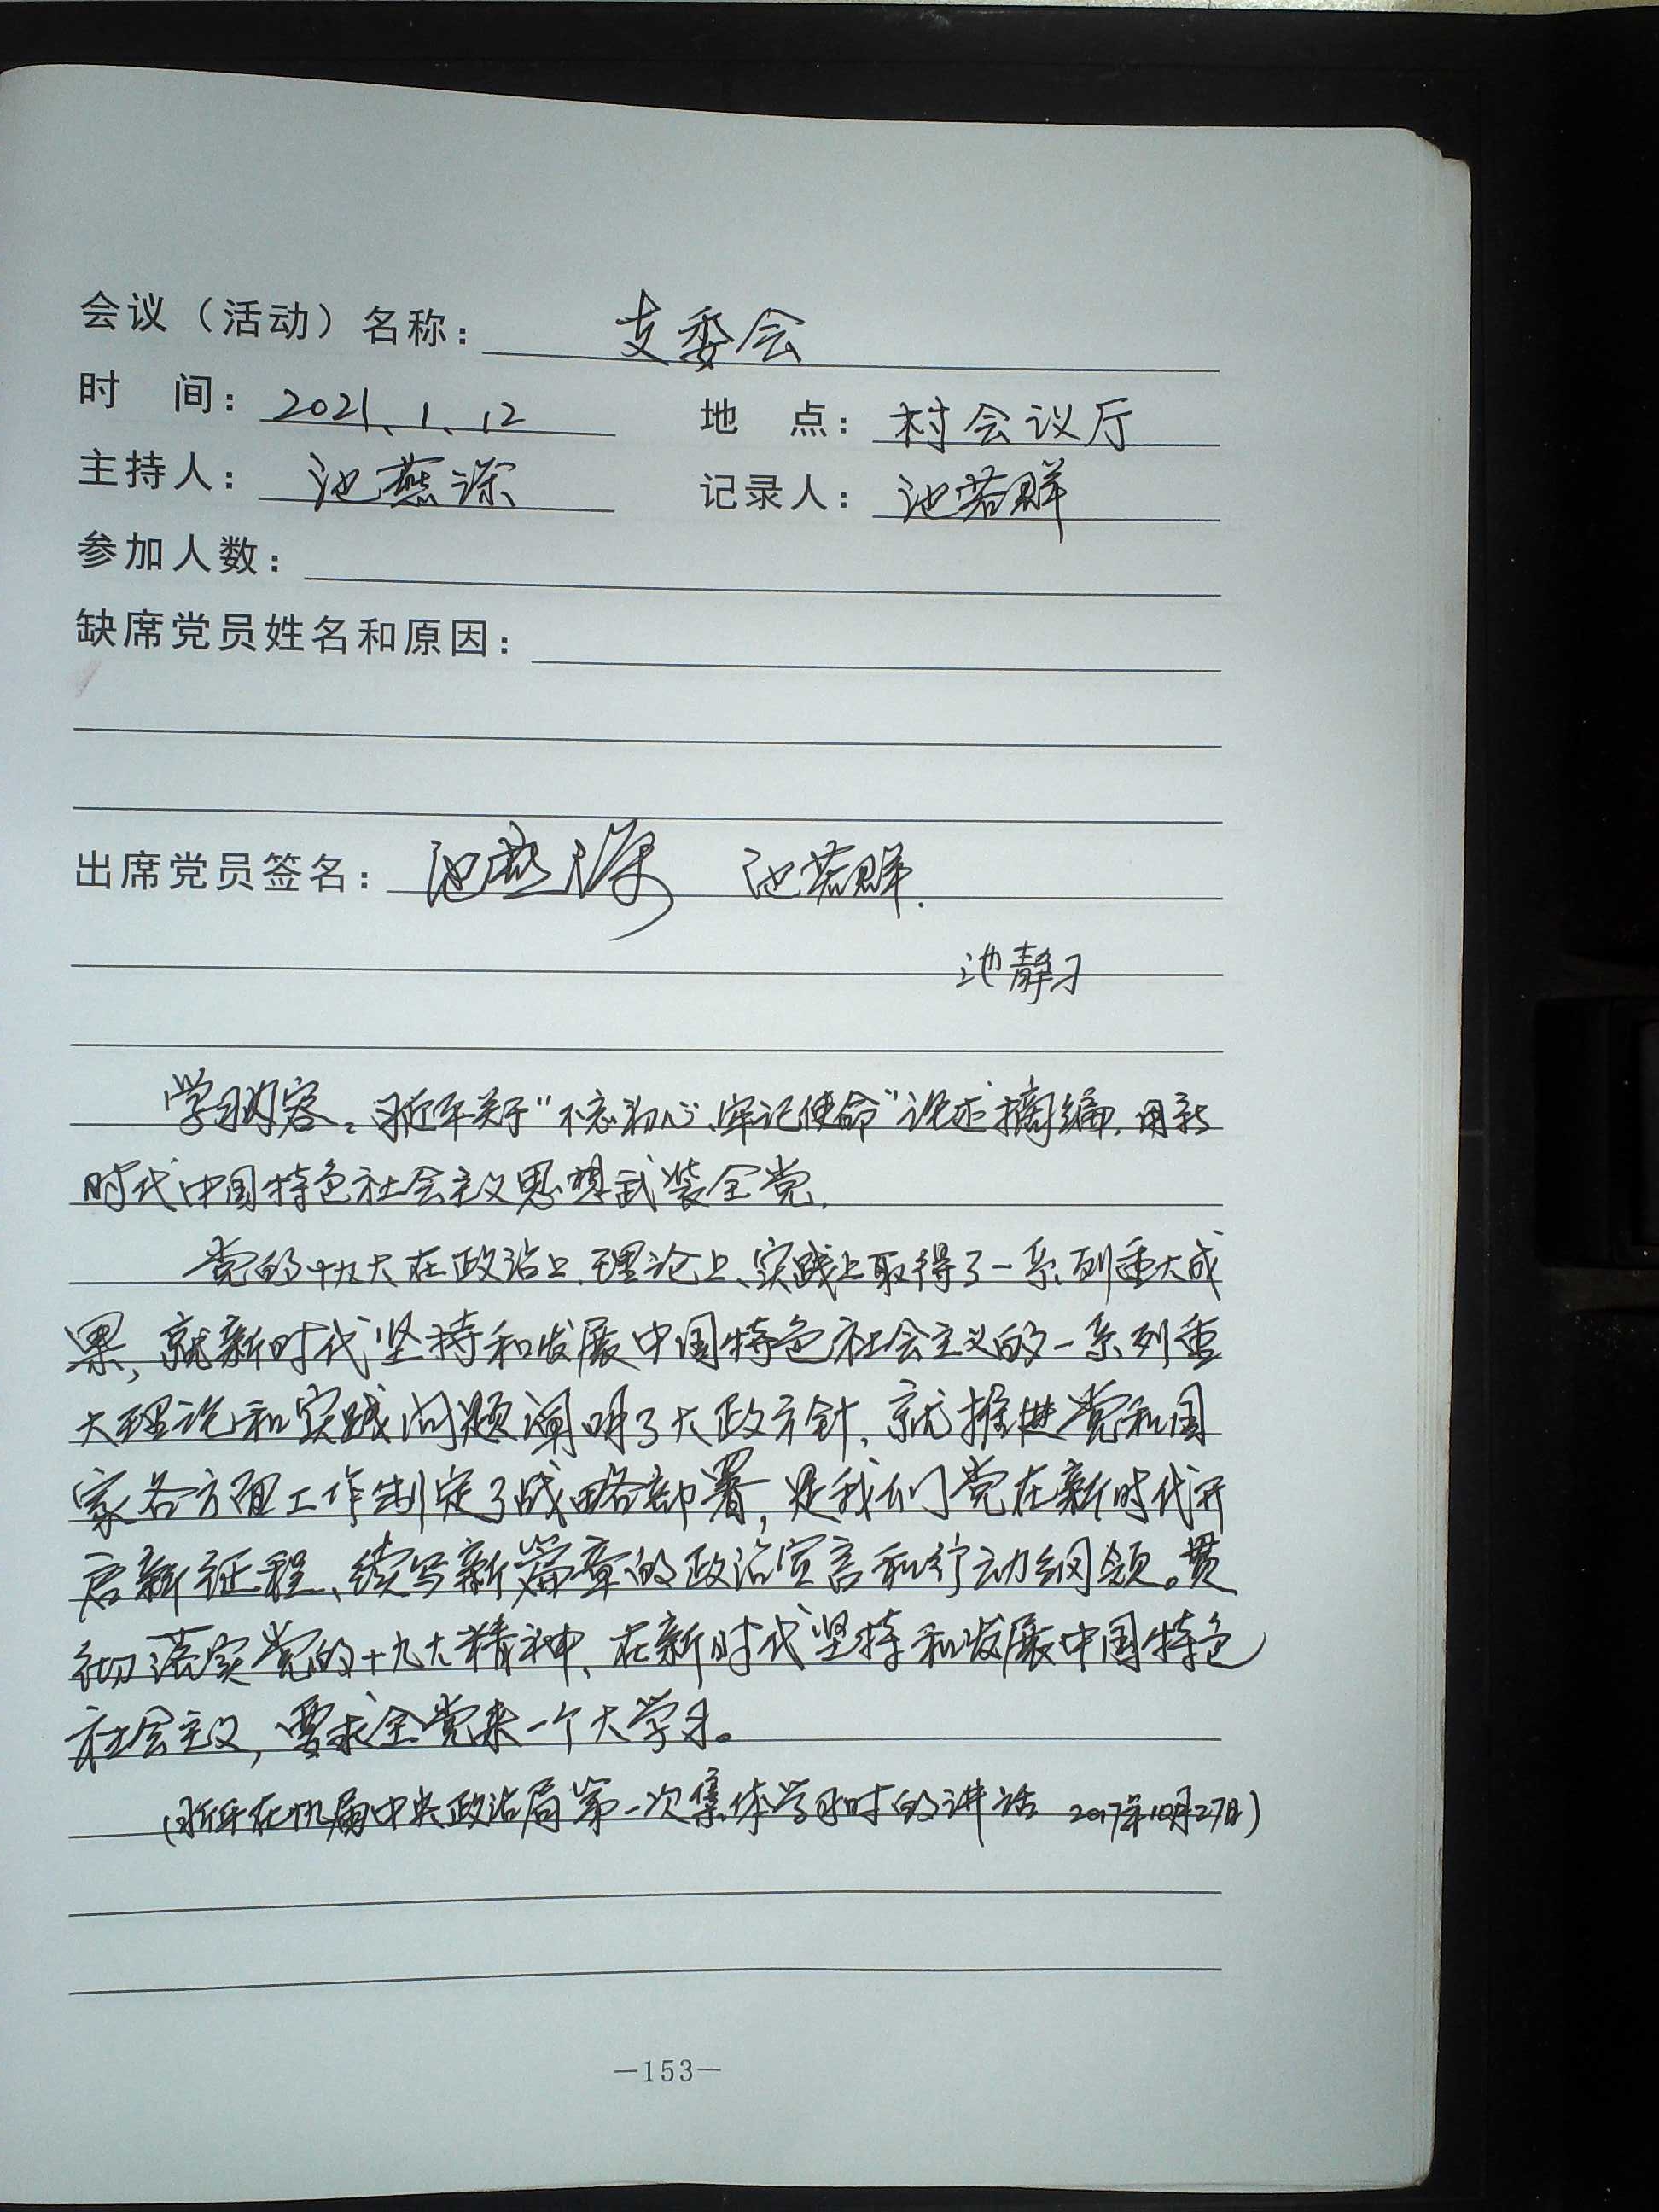 会议（活动）名称：支委会
时 间：2021、1、12 地 点：村会议厅
主持人：池燕深 记录人：池若群
参加人数：
缺席党员姓名和原因：
出席党员签名：池燕深 池若群.
池静
学习内容：习近平关于“不忘初心、牢记使命”论述摘编，用新
时代中国特色社会主义思想武装全党.
党的十九大在政治上、理论上、实践上取得了一系列重大成
果，就新时代坚持和发展中国特色社会主义的一系列重
大理论和实践问题阐明了大政方针，就推进党和国
家各方面工作制定了战略部署，是我们党在新时代开
启新征程、续写新篇章的政治宣言和行动纲领。贯
彻落实党的十九大精神、在新时代坚持和发展中国特色
社会主义，要求全党来一个大学习。
（习近平在十九届中央政治局第一次集体学习时的讲话 2017年10月27日）
—153—